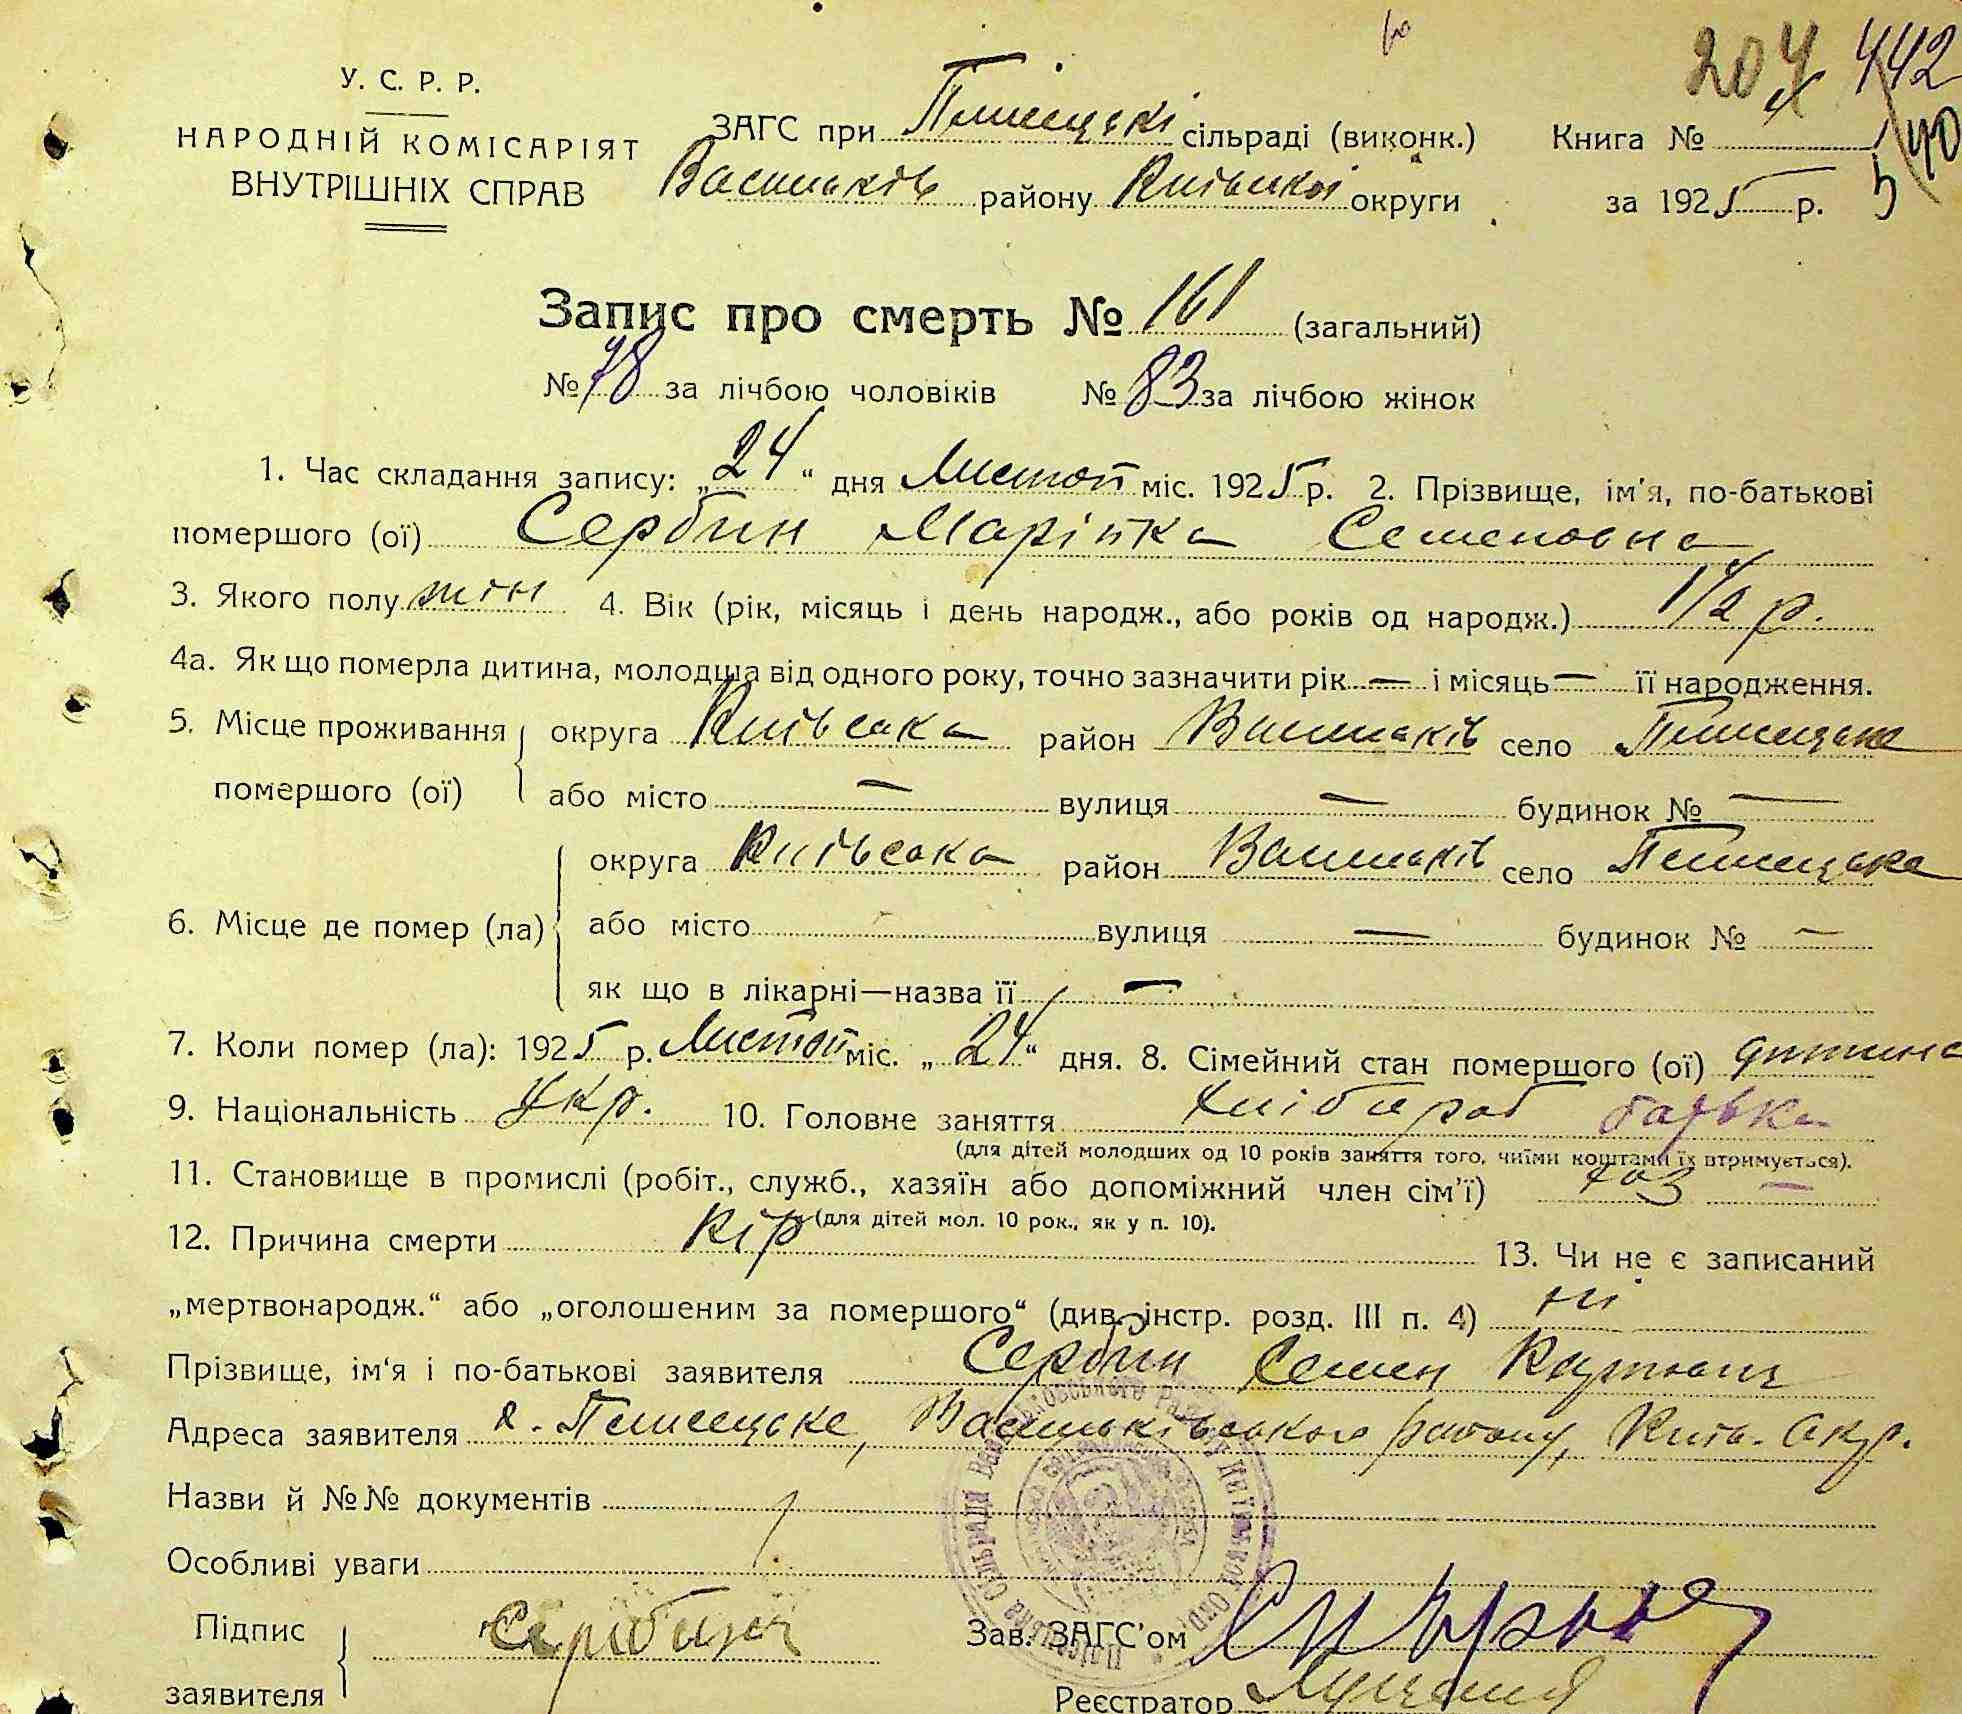 204 442
У. С. Р. Р.
НАРОДНІЙ КОМІСАРІЯТ
ВНУТРІШНІХ СПРАВ
ЗАГС при Плисецькі сільраді (виконк.) Книга №
Васильків району Київської округи за 1925 р.
Запис про смерть № 161 (загальний)
№ 78 за лічбою чоловіків № 83 за лічбою жінок
1. Час складання запису: „24“ дня Листоп міс. 1925 р. 2. Прізвище, ім'я, по-батькові
помершого (ої) Сербин Марійка Семеновна
3. Якого полу жін 4. Вік (рік, місяць і день народж., або років од народж.) 1 1/2 р.
4а. Як що померла дитина, молодша від одного року, точно зазначити рік — і місяць — її народження.
5. Місце проживання помершого (ої) округа Київська район Васильків село Плисецьке
або місто — вулиця — будинок № —
6. Місце де помер (ла) округа Київська район Васильків село Плисецьке
або місто вулиця — будинок № —
як що в лікарні—назва її —
7. Коли помер (ла): 1925 р. Листоп міс. „24“ дня. 8. Сімейний стан помершого (ої) дитина
9. Національність Укр. 10. Головне заняття Хлібороб батька
(для дітей молодших од 10 років заняття того, чиїми коштами їх втримується).
11. Становище в промислі (робіт., служб., хазяїн або допоміжний член сім'ї) хоз —
(для дітей мол. 10 рок., як у п. 10).
12. Причина смерти Кір 13. Чи не є записаний
„мертвонародж.“ або „оголошеним за помершого“ (див. інстр. розд. III п. 4) ні
Прізвище, ім'я і по-батькові заявителя Сербин Семен
Адреса заявителя с. Плисецьке, Васильківського району, Київ. Окр.
Назви й №№ документів
Особливі уваги
Підпис заявителя Сербин
Зав. ЗАГС'ом
Реєстратор